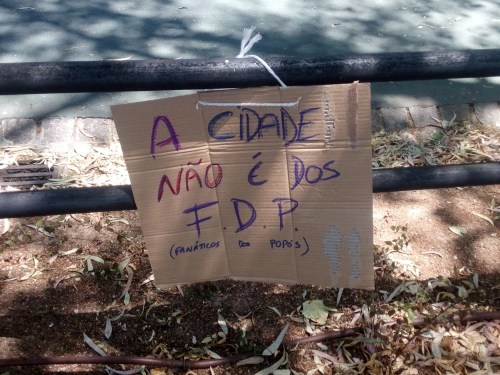 A CIDADE
NÃO É DOS
F.D.P.
(FANÁTICOS DO POPÓS)